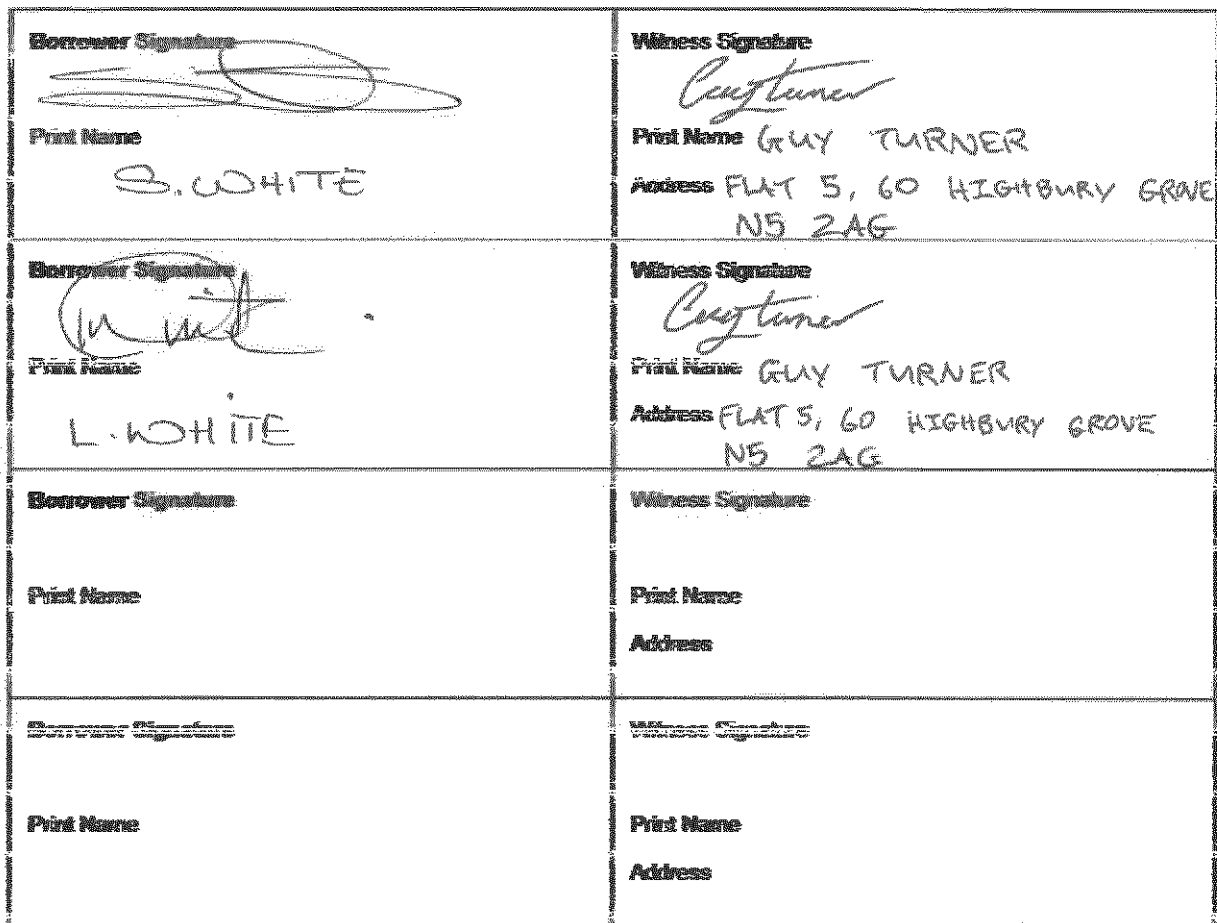 Borrower Signature
Print Name
S. WHITE
Witness Signature
Guy Turner
Print Name GUY TURNER
Address FLAT 5, 60 HIGHBURY GROVE
N5 2AG
Borrower Signature
Print Name
L. WHITE
Witness Signature
Guy Turner
Print Name GUY TURNER
Address FLAT 5, 60 HIGHBURY GROVE
N5 2AG
Borrower Signature
Print Name
Witness Signature
Print Name
Address
Borrower Signature
Print Name
Witness Signature
Print Name
Address